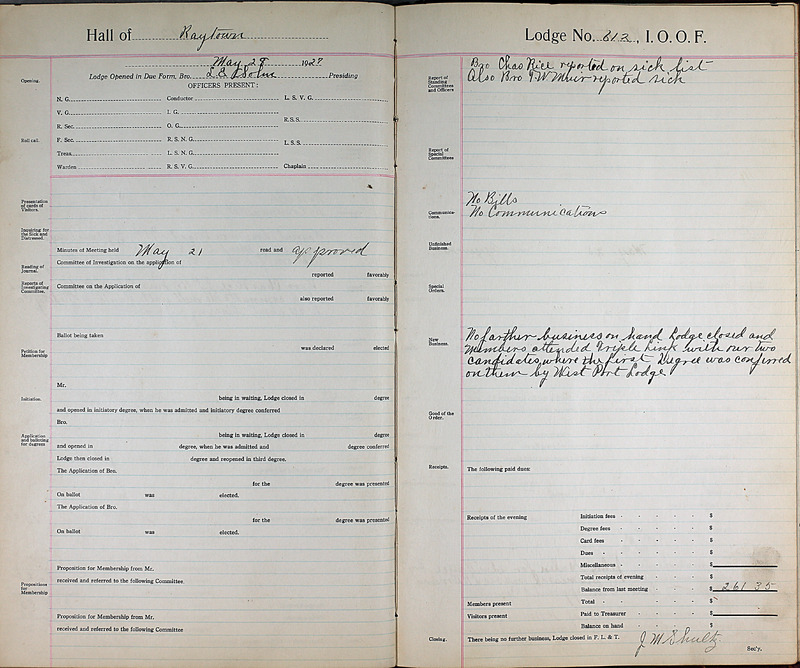 Hall of Raytown
May 28 1928
Opening.
Lodge Opened in Due Form, Bro. Presiding
OFFICERS PRESENT:
N. G. Conductor L. S. V. G.
V. G. I. G.
R. S. S.
R. Sec. O. G.
Roll call.
F. Sec. R. S. N. G.
L. S. S.
Treas. L. S. N. G.
Warden R. S. V. G. Chaplain
Presentation
of cards of
Visitors.
Inquiring for
the Sick and
Distressed.
Minutes of Meeting held May 21 read and approved
Committee of Investigation on the application of
Reading of
Journal.
reported favorably
Reports of
Investigating
Committee.
Committee on the Application of
also reported favorably
Ballot being taken
was declared elected
Petition for
Membership
Mr.
Initiation.
being in waiting, Lodge closed in degree
and opened in initiatory degree, when he was admitted and initiatory degree conferred
Bro.
Application
and balloting
for degrees
being in waiting, Lodge closed in degree
and opened in degree, when he was admitted and degree conferred
Lodge then closed in degree and reopened in third degree.
The Application of Bro.
for the degree was presented
On ballot was elected.
The Application of Bro.
for the degree was presented
On ballot was elected.
Proposition for Membership from Mr.
received and referred to the following Committee
Propositions
for
Membership
Proposition for Membership from Mr.
received and referred to the following Committee
Lodge No. 612, I. O. O. F.
Bro Chas Rice reported on sick list
Also Bro T W Muir reported sick
Report of
Standing
Committees
and Officers
Report of
Special
Committees
No Bills
No Communications
Communica-
tions.
Unfinished
Business.
Special
Orders.
New
Business.
No farther business on hand Lodge closed and
Members attended Triple Link with our two
candidates, where the First Degree was conferred
on them by West Port Lodge
Good of the
Order.
Receipts.
The following paid dues:
Receipts of the evening Initiation fees $
Degree fees $
Card fees $
Dues $
Miscellaneous $
Total receipts of evening $
Balance from last meeting $ 261 35
Members present Total $
Visitors present Paid to Treasurer $
Balance on hand $
Closing. There being no further business, Lodge closed in F. L. & T. J M Shultz
Sec'y.